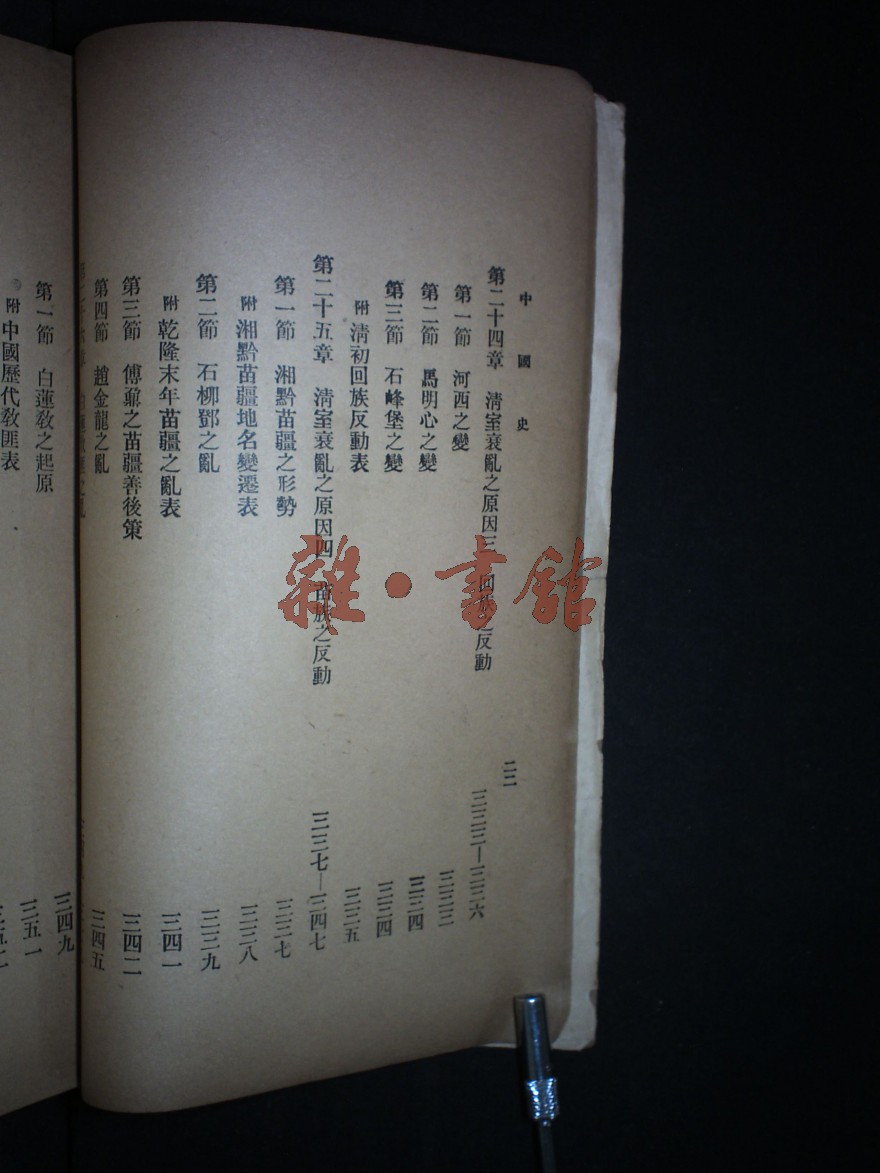 中國史
二二
第二十四章 清室衰亂之原因三 回族之反動 三三三—三三六
第一節 河西之變 三三三
第二節 馬明心之變 三三四
第三節 石峰堡之變 三三四
附 清初回族反動表 三三五
第二十五章 清室衰亂之原因四 苗族之反動 三三七—三四七
第一節 湘黔苗疆之形勢 三三七
附 湘黔苗疆地名變遷表 三三八
第二節 石柳鄧之亂 三三九
附 乾隆末年苗疆之亂表 三四一
第三節 傅鼐之苗疆善後策 三四二
第四節 趙金龍之亂 三四五
三四九
第一節 白蓮教之起原 三五一
附 中國歷代教匪表
雜·書館